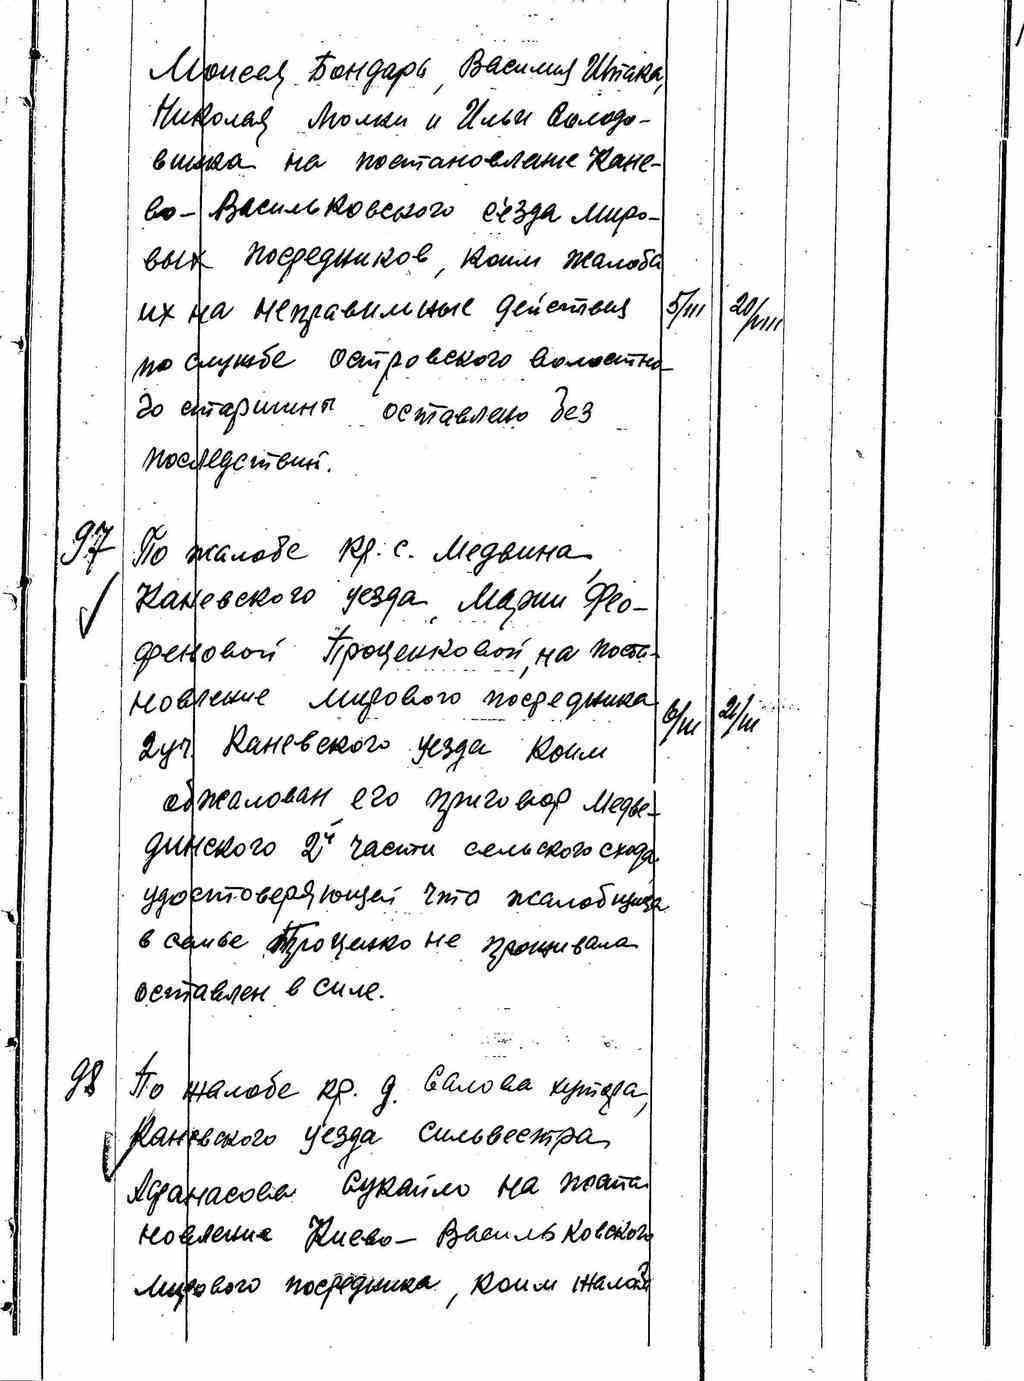 Моисея Бондаря, Василия Иттака,
Николая Молки и Ильи Солодо-
вника на постановление Кане-
во-Васильковского сезда миро-
вых посредников, коим жалоба
их на неправильные действия 5/III 20/VIII
по службе Островского волостно-
го старшины оставлено без
последствий.
97 По жалобе кр. с. Медвина,
Каневского уезда, Марии Фео-
феновой Проценковой, на поста-
новление мирового посредника 6/III 21/III
2 уч. Каневского уезда коим
обжалован его приговор Медве-
динского 2й части сельского схода
удостоверяющей что жалобщица
в семье Проценко не проживала
оставлен в силе.
98 По жалобе кр. д. Салова хутора,
Каневского уезда Сильвестра
Афанасова Сукайло на поста
новление Киево-Васильковского
мирового посредника, коим жалоб